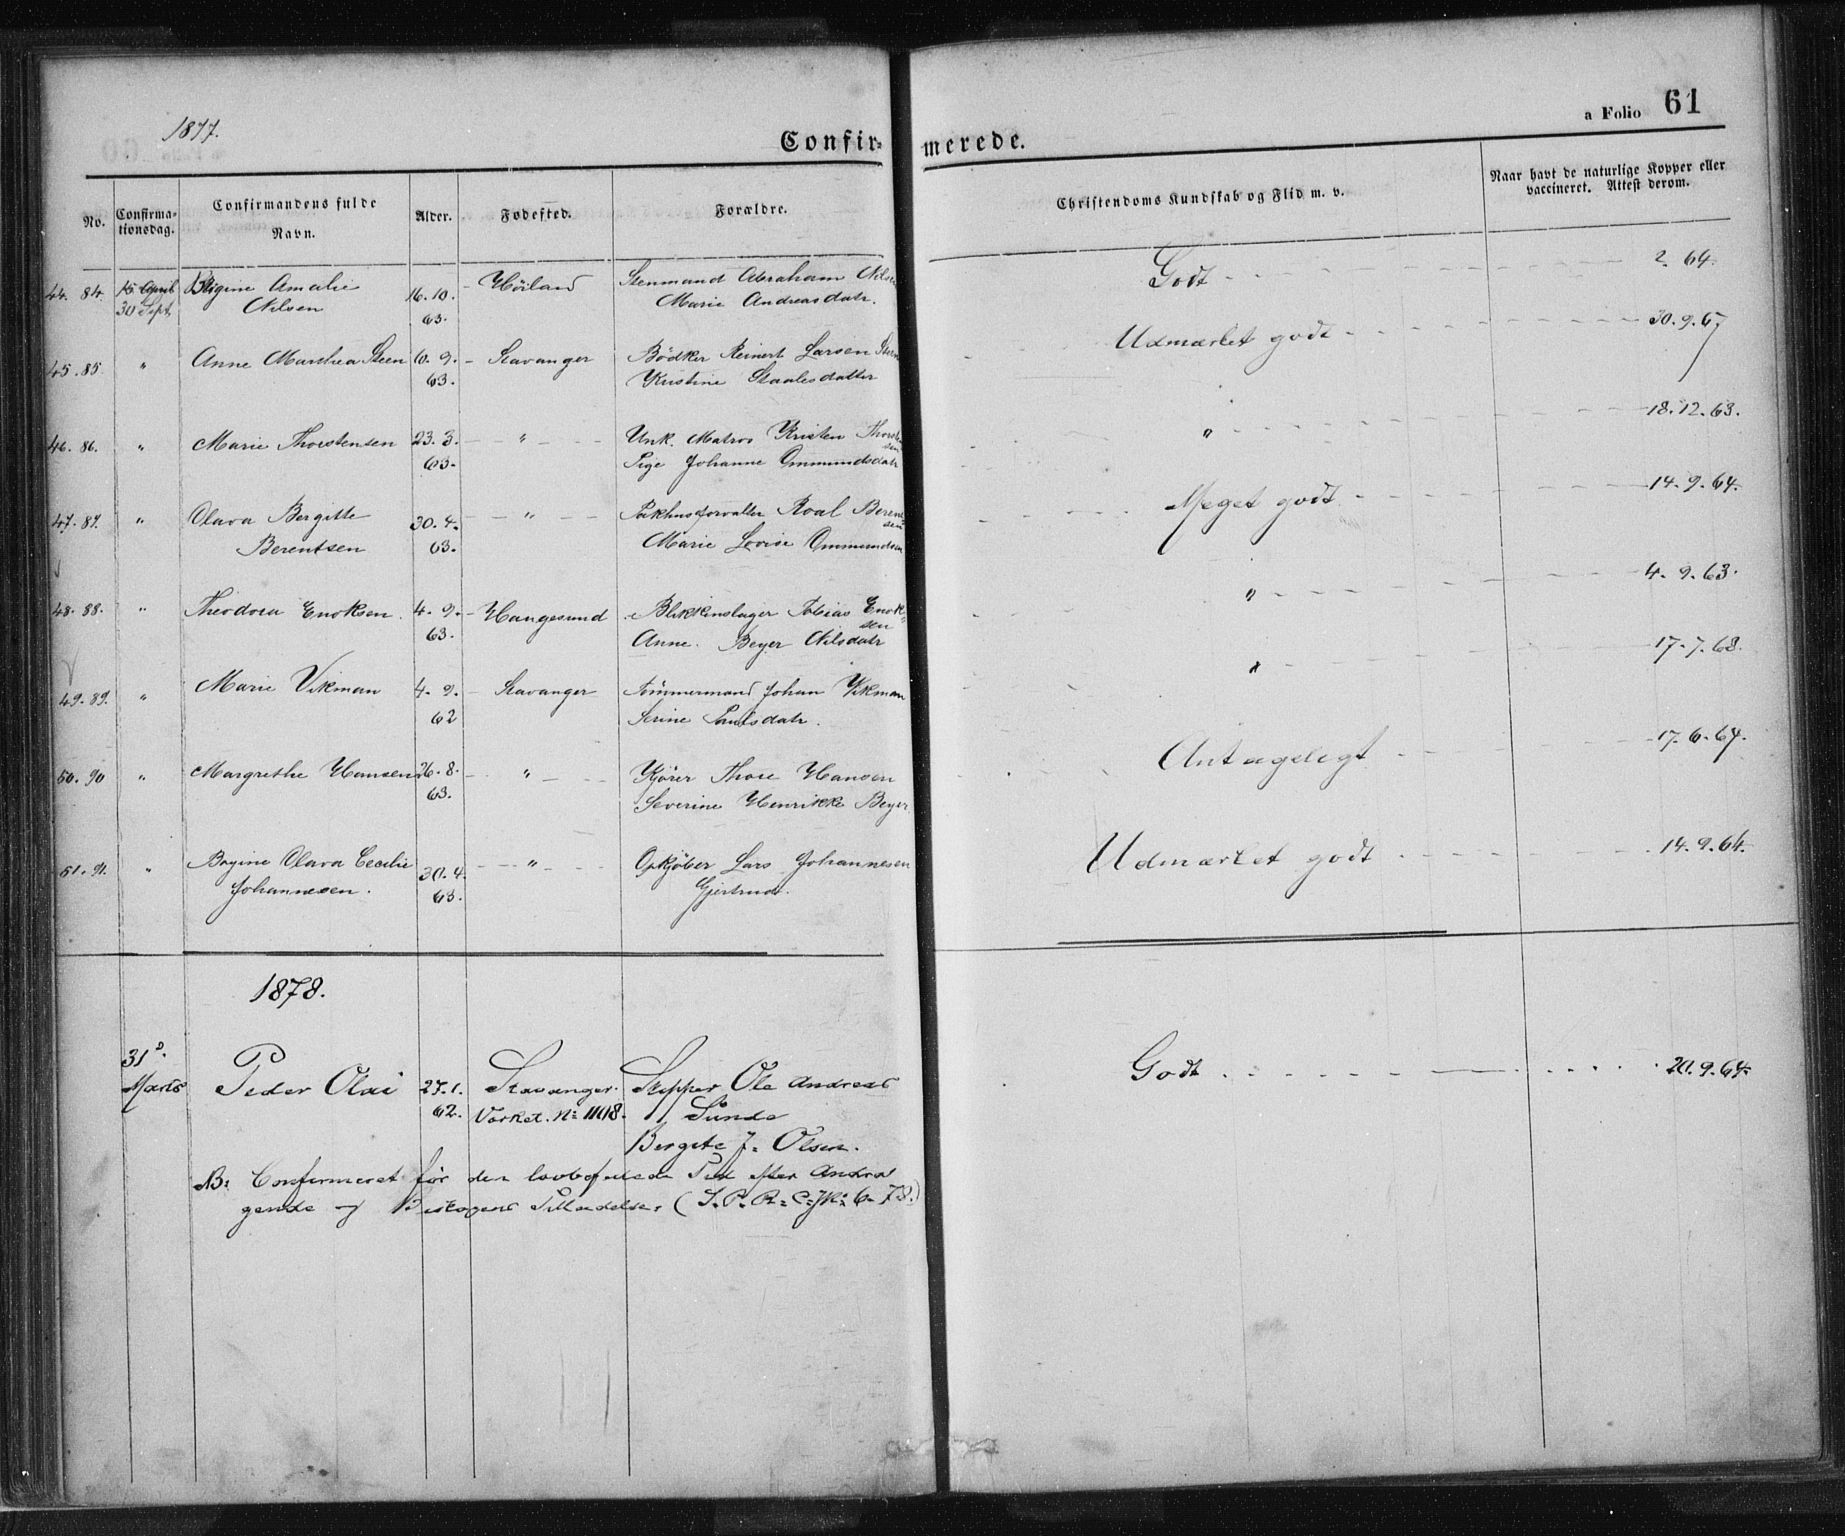 1877.
Confirmerede.
a Folio 61
No.
Confirmationsdag.
Confirmandens fulde Navn.
Alder.
Fødested.
Forældre.
Christendoms Kundskab og Flid m. v.
Naar havt de naturlige Kopper eller vaccineret. Attest derom.
44. 84. 15 April Amalie 16.10. Höiland Stenmand Abraham Nilsen Godt 2. 64.
30 Sept Nilsen 63. Marie Andreasdatr.
45. 85. " Anne Marthea Steen 10. 9. Stavanger Bödker Reinert Larsen Steen Udmærket godt 30.9.67
63. Kristine Staalesdatter
46. 86. " Marie Thorstensen 23. 3. " Unk. Matros Kristen Thorstensen " 18.12.63.
63. Pige Johanne Ommundsdatr
47. 87. " Olava Bergitte 30. 4. " Pakhusforvalter Roal Berentsen Meget godt 14.9.64.
Berentsen 63. Marie Lovise Ommundsen
48. 88. " Theodora Enoksen. 4. 9. Haugesund Blikkenslager Tobias Enoksen " 4. 9. 63.
63. Anne Beyer Nilsdatr
49. 89. " Marie Vikman 4. 9. Stavanger Tömmermand Johan Vikman " 17.7.68.
62 Serine Paulsdatr.
50. 90 " Margrethe Hansen 26. 8. " Kjörer Thore Hansen Antageligt 17.6.64.
63. Severine Henrikke Beyer
51. 91. " Olava Cecilie 30. 4. " Opkjöber Lars Johannesen Udmærket godt 14.9.64.
Johannesen. 63. Gjertrud.
1878.
31.
Marts Peder Olai 27.1. Stavanger. Skipper Ole Andreas Godt 20.9.64.
62. Værket. No 1108. Sunde
Bergite J. Olsen.
NB: Confirmeret før den lovbefalede Tid efter Andra
gende og Biskopens Tilladelse. (S. P. R. C. 6-78.)